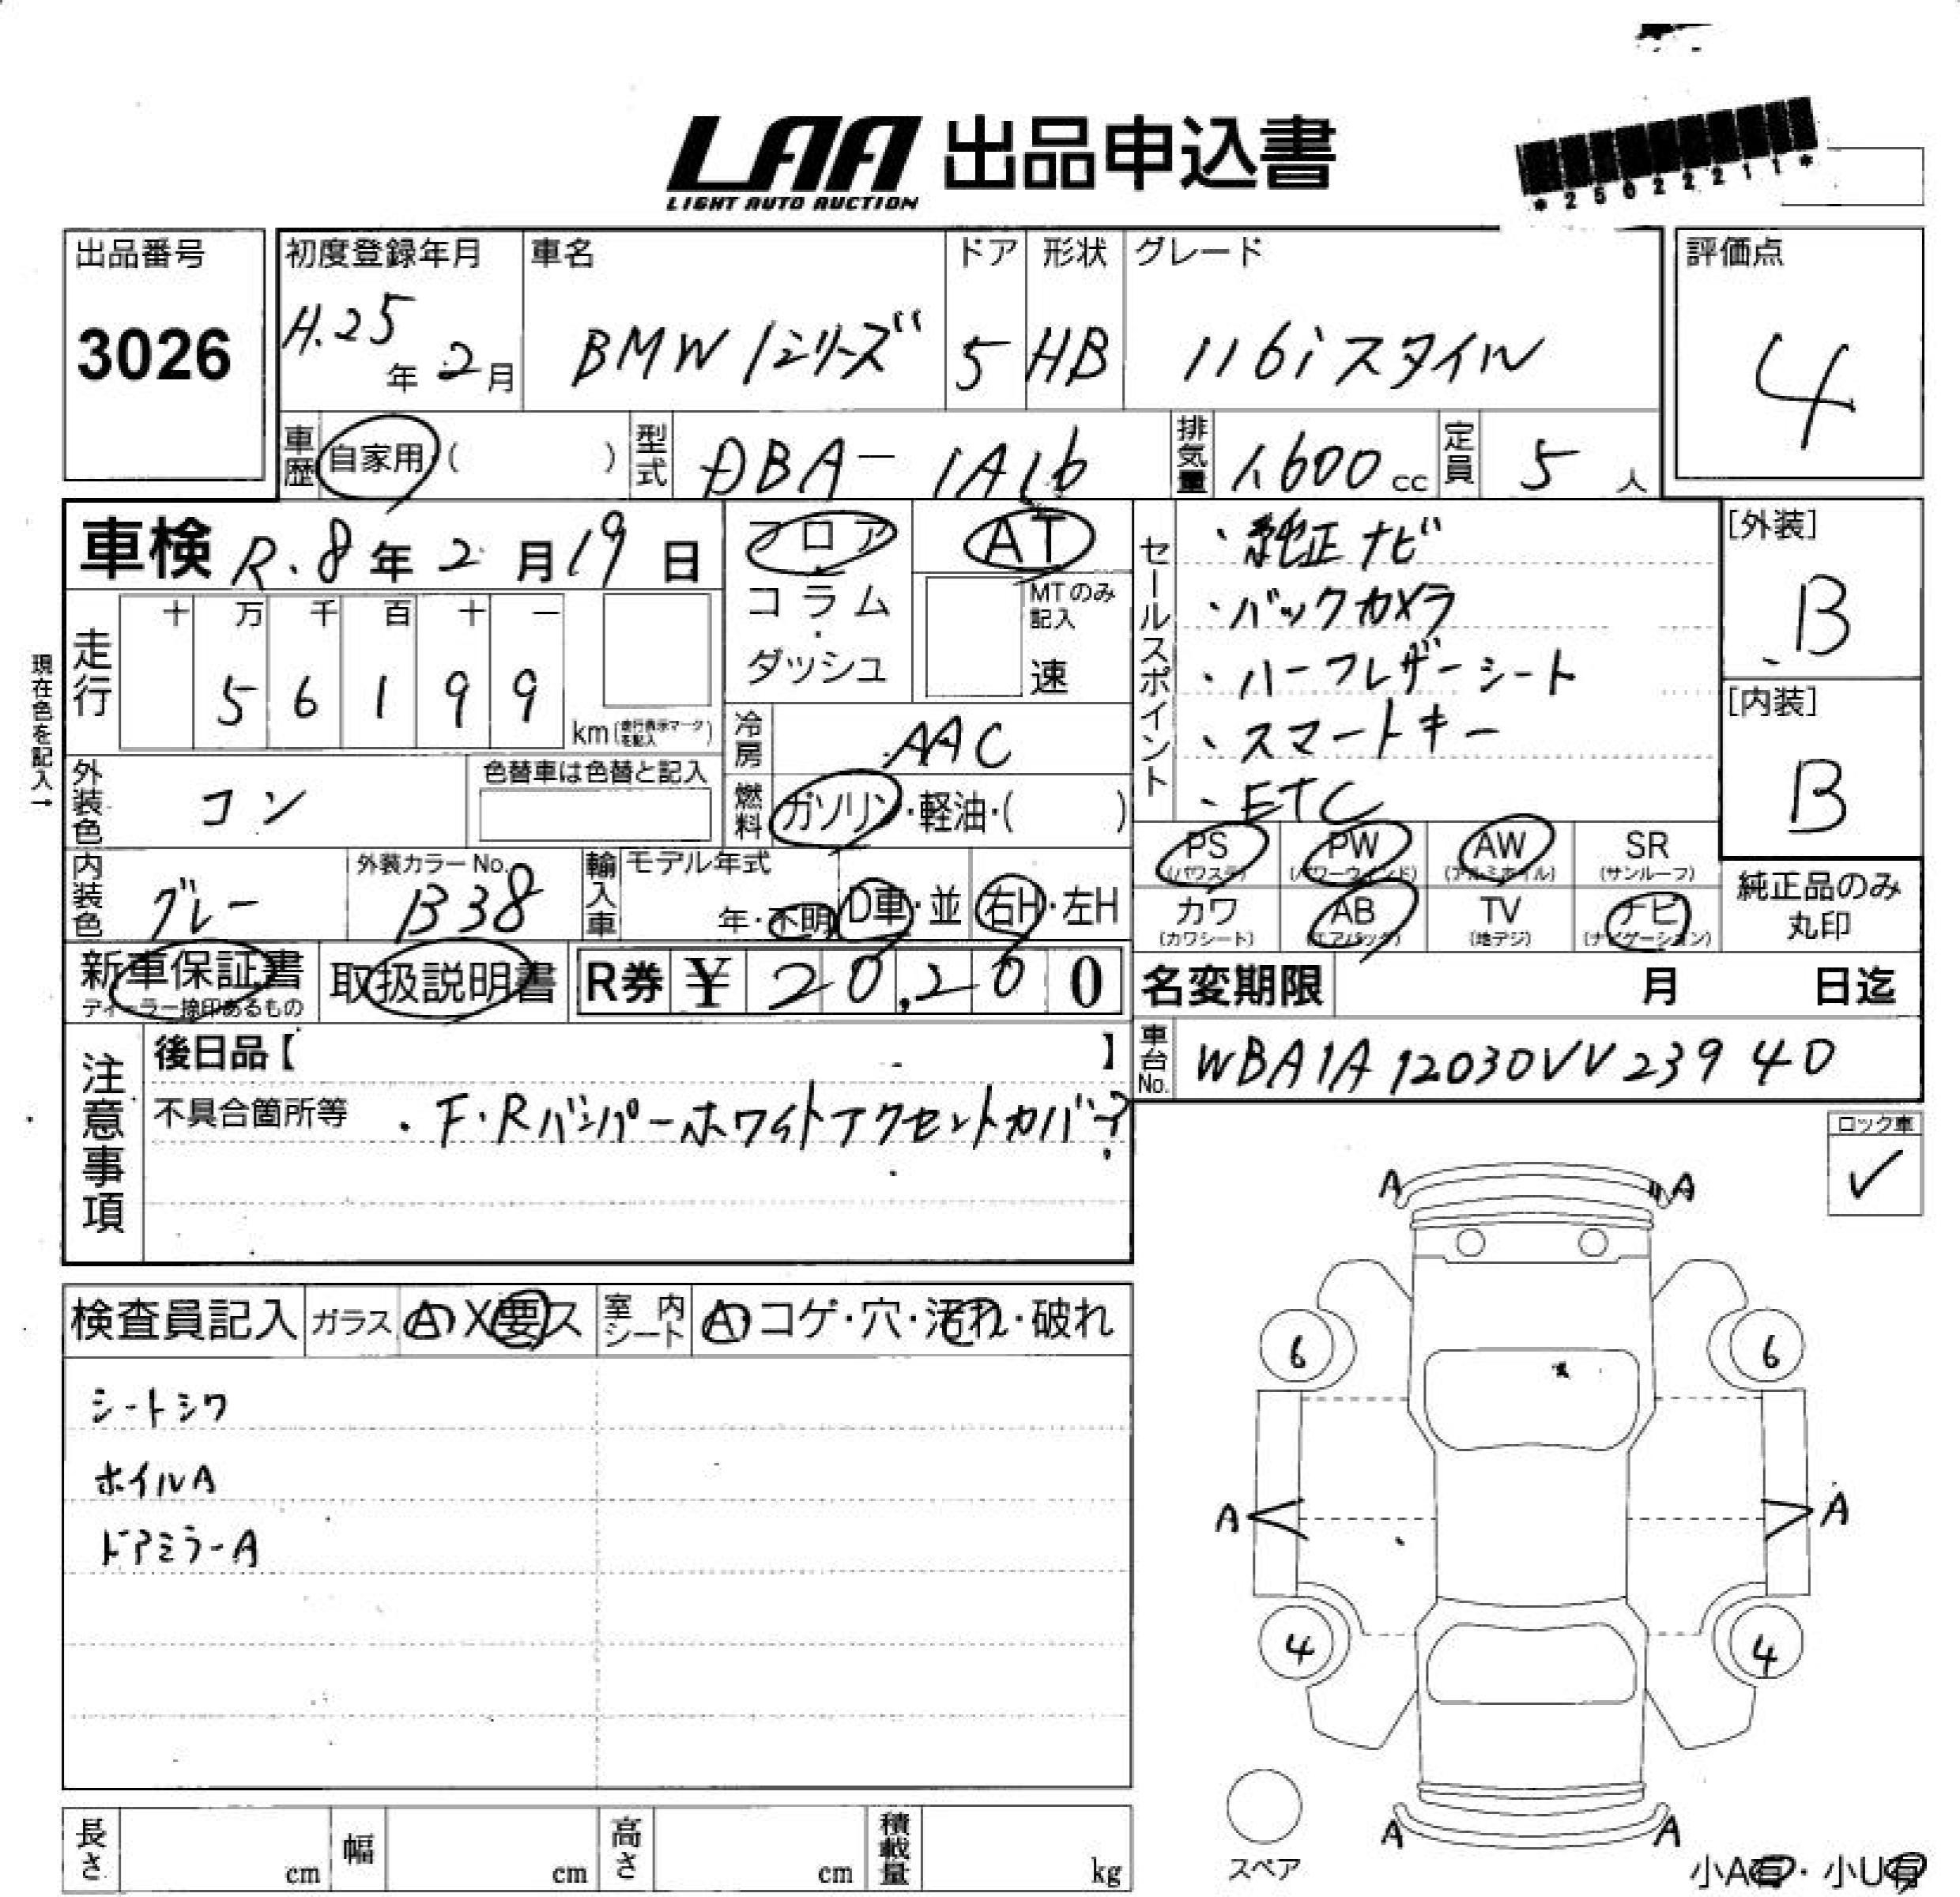 LAA 出品申込書
LIGHT AUTO AUCTION
*25022211*
出品番号
3026
初度登録年月
H.25年 2月
車名
BMW 1シリーズ
ドア
5
形状
HB
グレード
116i スタイル
評価点
4
車歴 自家用 ( )
型式 DBA-1A16
排気量 1,600 cc
定員 5 人
車検 R.8年 2月 19日
フロア・コラム・ダッシュ
AT
MTのみ記入
速
セールスポイント
・純正ナビ
・バックカメラ
・ハーフレザーシート
・スマートキー
・ETC
[外装]
B
[内装]
B
現在色を記入→
走行
十 万 千 百 十 一
5 6 1 9 9
km (走行表示マークを記入)
冷房 AAC
外装色 コン
色替車は色替と記入
燃料 ガソリン・軽油・( )
内装色 グレー
外装カラーNo. B38
輸入車 モデル年式
年・不明 D車・並 右H・左H
PS (パワステ) PW (パワーウィンド) AW (アルミホイル) SR (サンルーフ)
カワ (カワシート) AB (エアバッグ) TV (地デジ) ナビ (ナビゲーション)
純正品のみ丸印
新車保証書
ディーラー捺印あるもの
取扱説明書
R券 ¥ 20,280
名変期限 月 日迄
車台No. WBA1A12030VV23940
注意事項
後日品【 】
不具合箇所等 ・F・Rバンパーホワイトアクセントカバー?
ロック車
✓
検査員記入 ガラス A・X要ス 室内シート A・コゲ・穴・汚れ・破れ
シートシワ
ホイルA
ドアミラーA
A A
6 6
A A
4 4
A A
スペア
小A有・小U有
長さ cm 幅 cm 高さ cm 積載量 kg